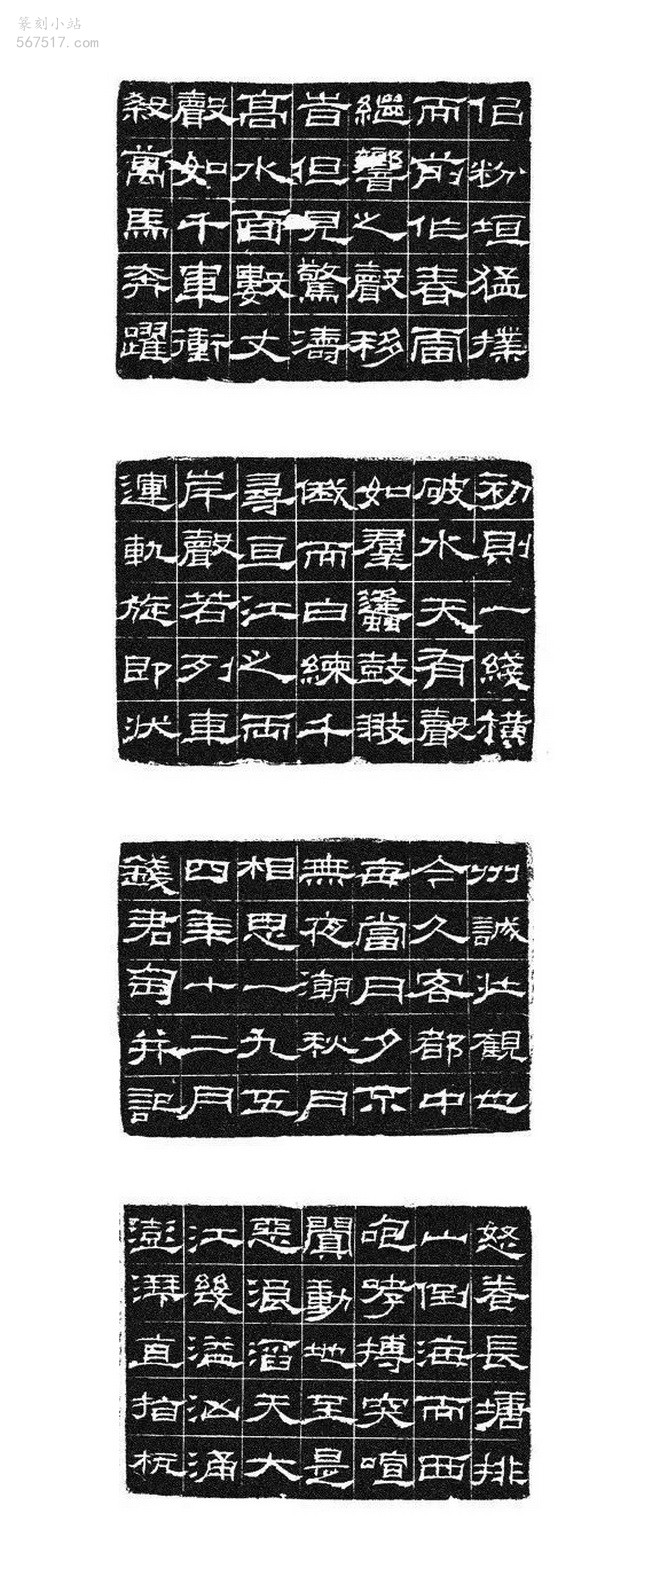 篆刻小站
567517.com
佀粉垣猛撲
而前作春雷
繼響之聲移
旹但見驚濤
高水面數丈
聲如千軍衝
殺萬馬奔躍
初則一綫橫
破水天有聲
如羣蠭鼓翄
俄而白練千
尋亘江之兩
岸聲若列車
運軌旋即狀
州誠壯觀也
今久客都中
每當月夕京
無夜潮秋月
相思一九五
四年十二月
錢君匋并記
怒卷長塘排
山倒海而西
咆哮搏突喧
闐動地至是
惡浪滔天大
江幾溢洶涌
澎湃直指杭